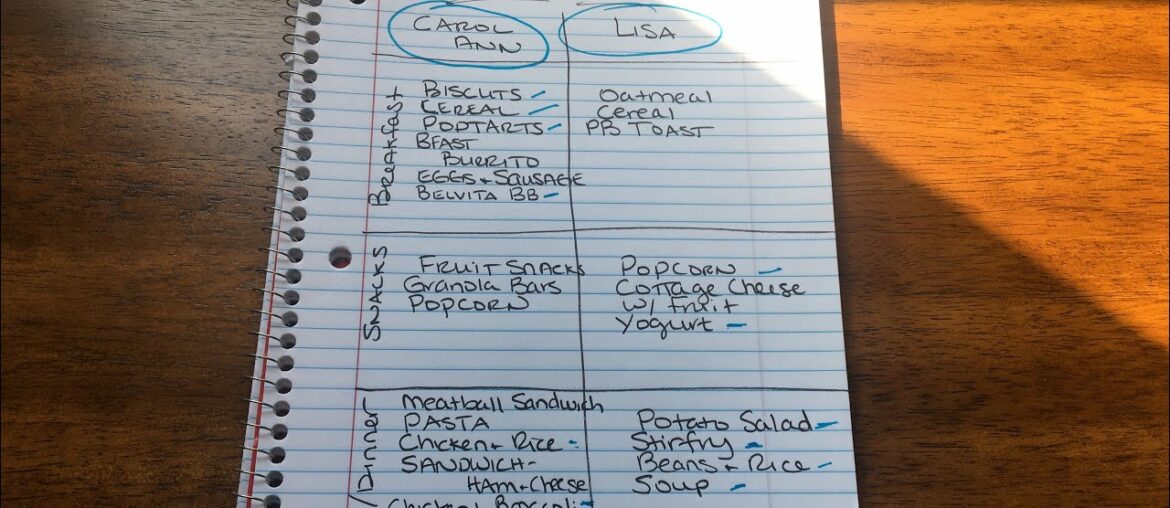 CAROL
ANN
LISA
Breakfast
BISCUTS
CEREAL
POPTARTS
BFAST
BURRITO
EGGS + SAUSAGE
BELVITA BB
Oatmeal
Cereal
PB TOAST
SNACKS
FRUIT SNACKS
Granola Bars
POPCORN
POPCORN
Cottage Cheese
w/ Fruit
Yogurt
/Dinner
Meatball Sandwich
PASTA
Chicken + Rice
SANDWICH-
HAM + Cheese
Chicken + Broccoli
Potato Salad
Stirfry
Beans + Rice
Soup